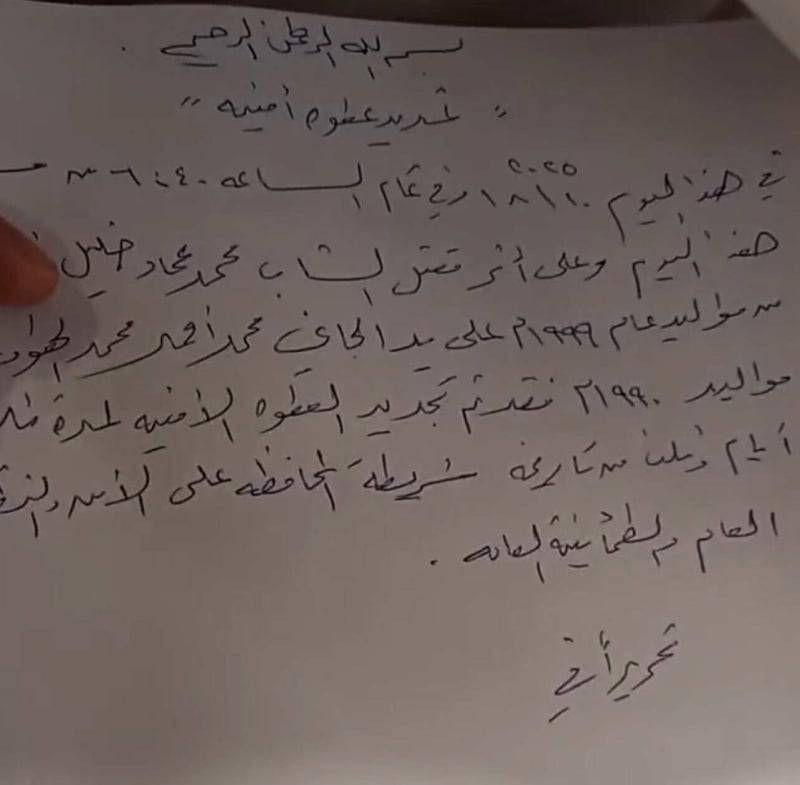 بسم الله الرحمن الرحيم .
" تمديد عطوه أمنيه "
في هذا اليوم ٢٠٢٥/٨/١٠ وفي تمام الساعه ٦:٤٠ من
هذا اليوم وعلى أثر مقتل الشاب محمد عماد خليل
من مواليد عام ١٩٩٩م على يد الجاني محمد أحمد محمد
مواليد ١٩٩٠م فقد تم تجديد العطوه الأمنيه لمدة
أيام وذلك من تاريخه شريطة المحافظه على الأمن
العام والطمأنينة العامه .
تحريراً في